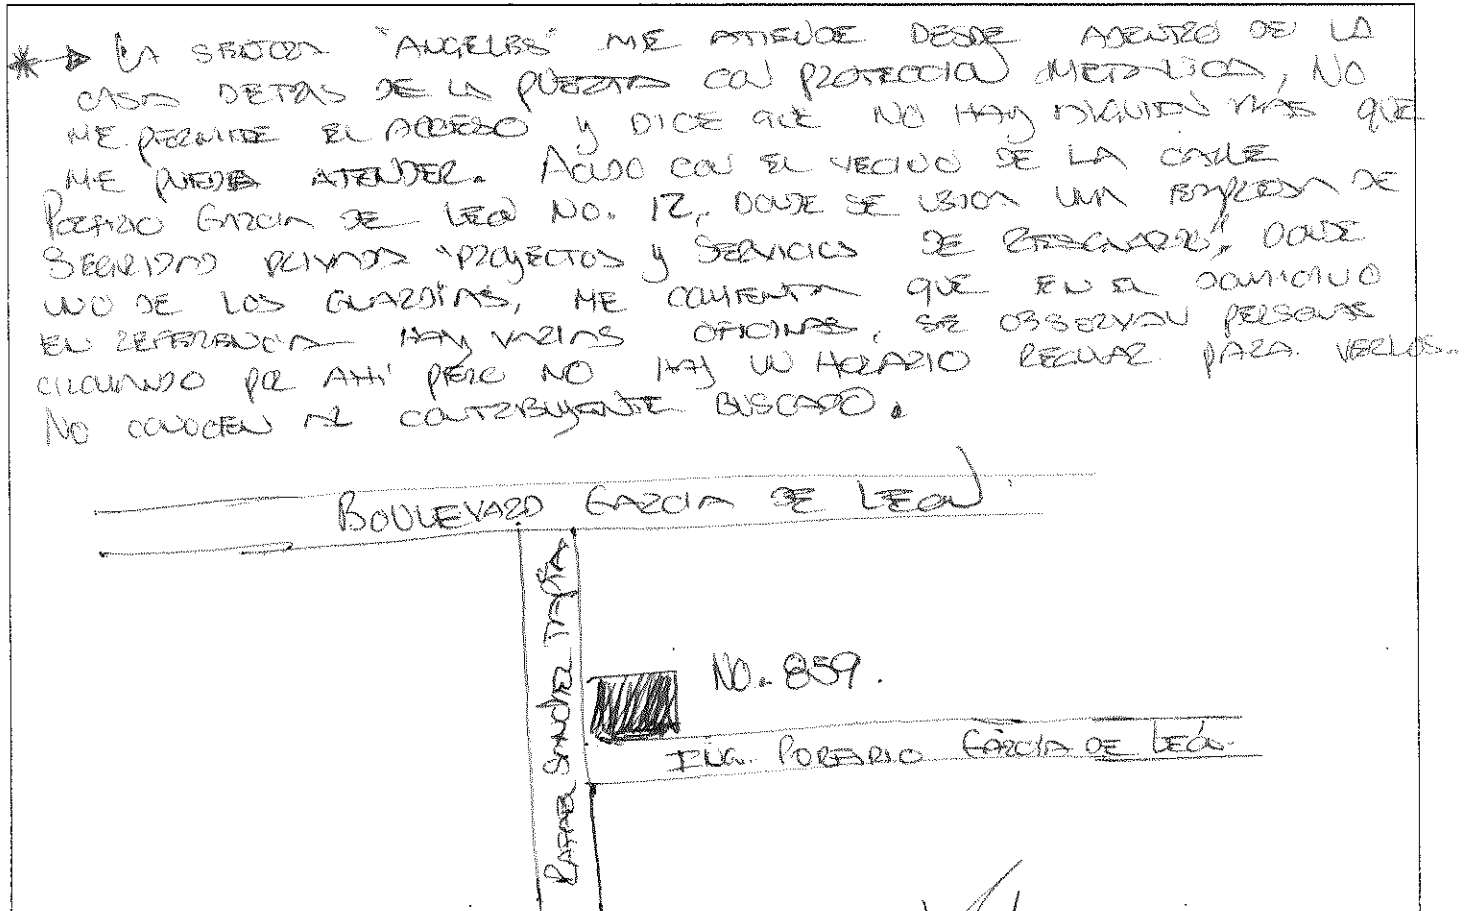 LA SEÑORA "ANGELES" ME ATIENDE DESDE ADENTRO DE LA
CASA DETRAS DE LA PUERTA CON PROTECCION METALICA, NO
ME PERMITE EL ACCESO Y DICE QUE NO HAY NIGUIEN MAS QUE
ME PUEDA ATENDER. ACUDO CON EL VECINO DE LA CALLE
PORFIRIO GARCIA DE LEON NO. 12, DONDE SE UBICA UNA EMPRESA DE
SEGURIDAD PRIVADA "PROYECTOS Y SERVICIOS DE RESGUARDO", DONDE
UNO DE LOS GUARDIAS, ME COMENTA QUE EN EL DOMICILIO
EN REFERENCIA HAY VARIAS OFICINAS, SE OBSERVAN PERSONAS
CIRCULANDO POR AHI PERO NO HAY UN HORARIO REGULAR PARA VERLOS.
NO CONOCEN AL CONTRIBUYENTE BUSCADO.
BOULEVARD GARCIA DE LEON
RAFAEL SANCHEZ TAPIA
NO. 859.
ING. PORFIRIO GARCIA DE LEON.